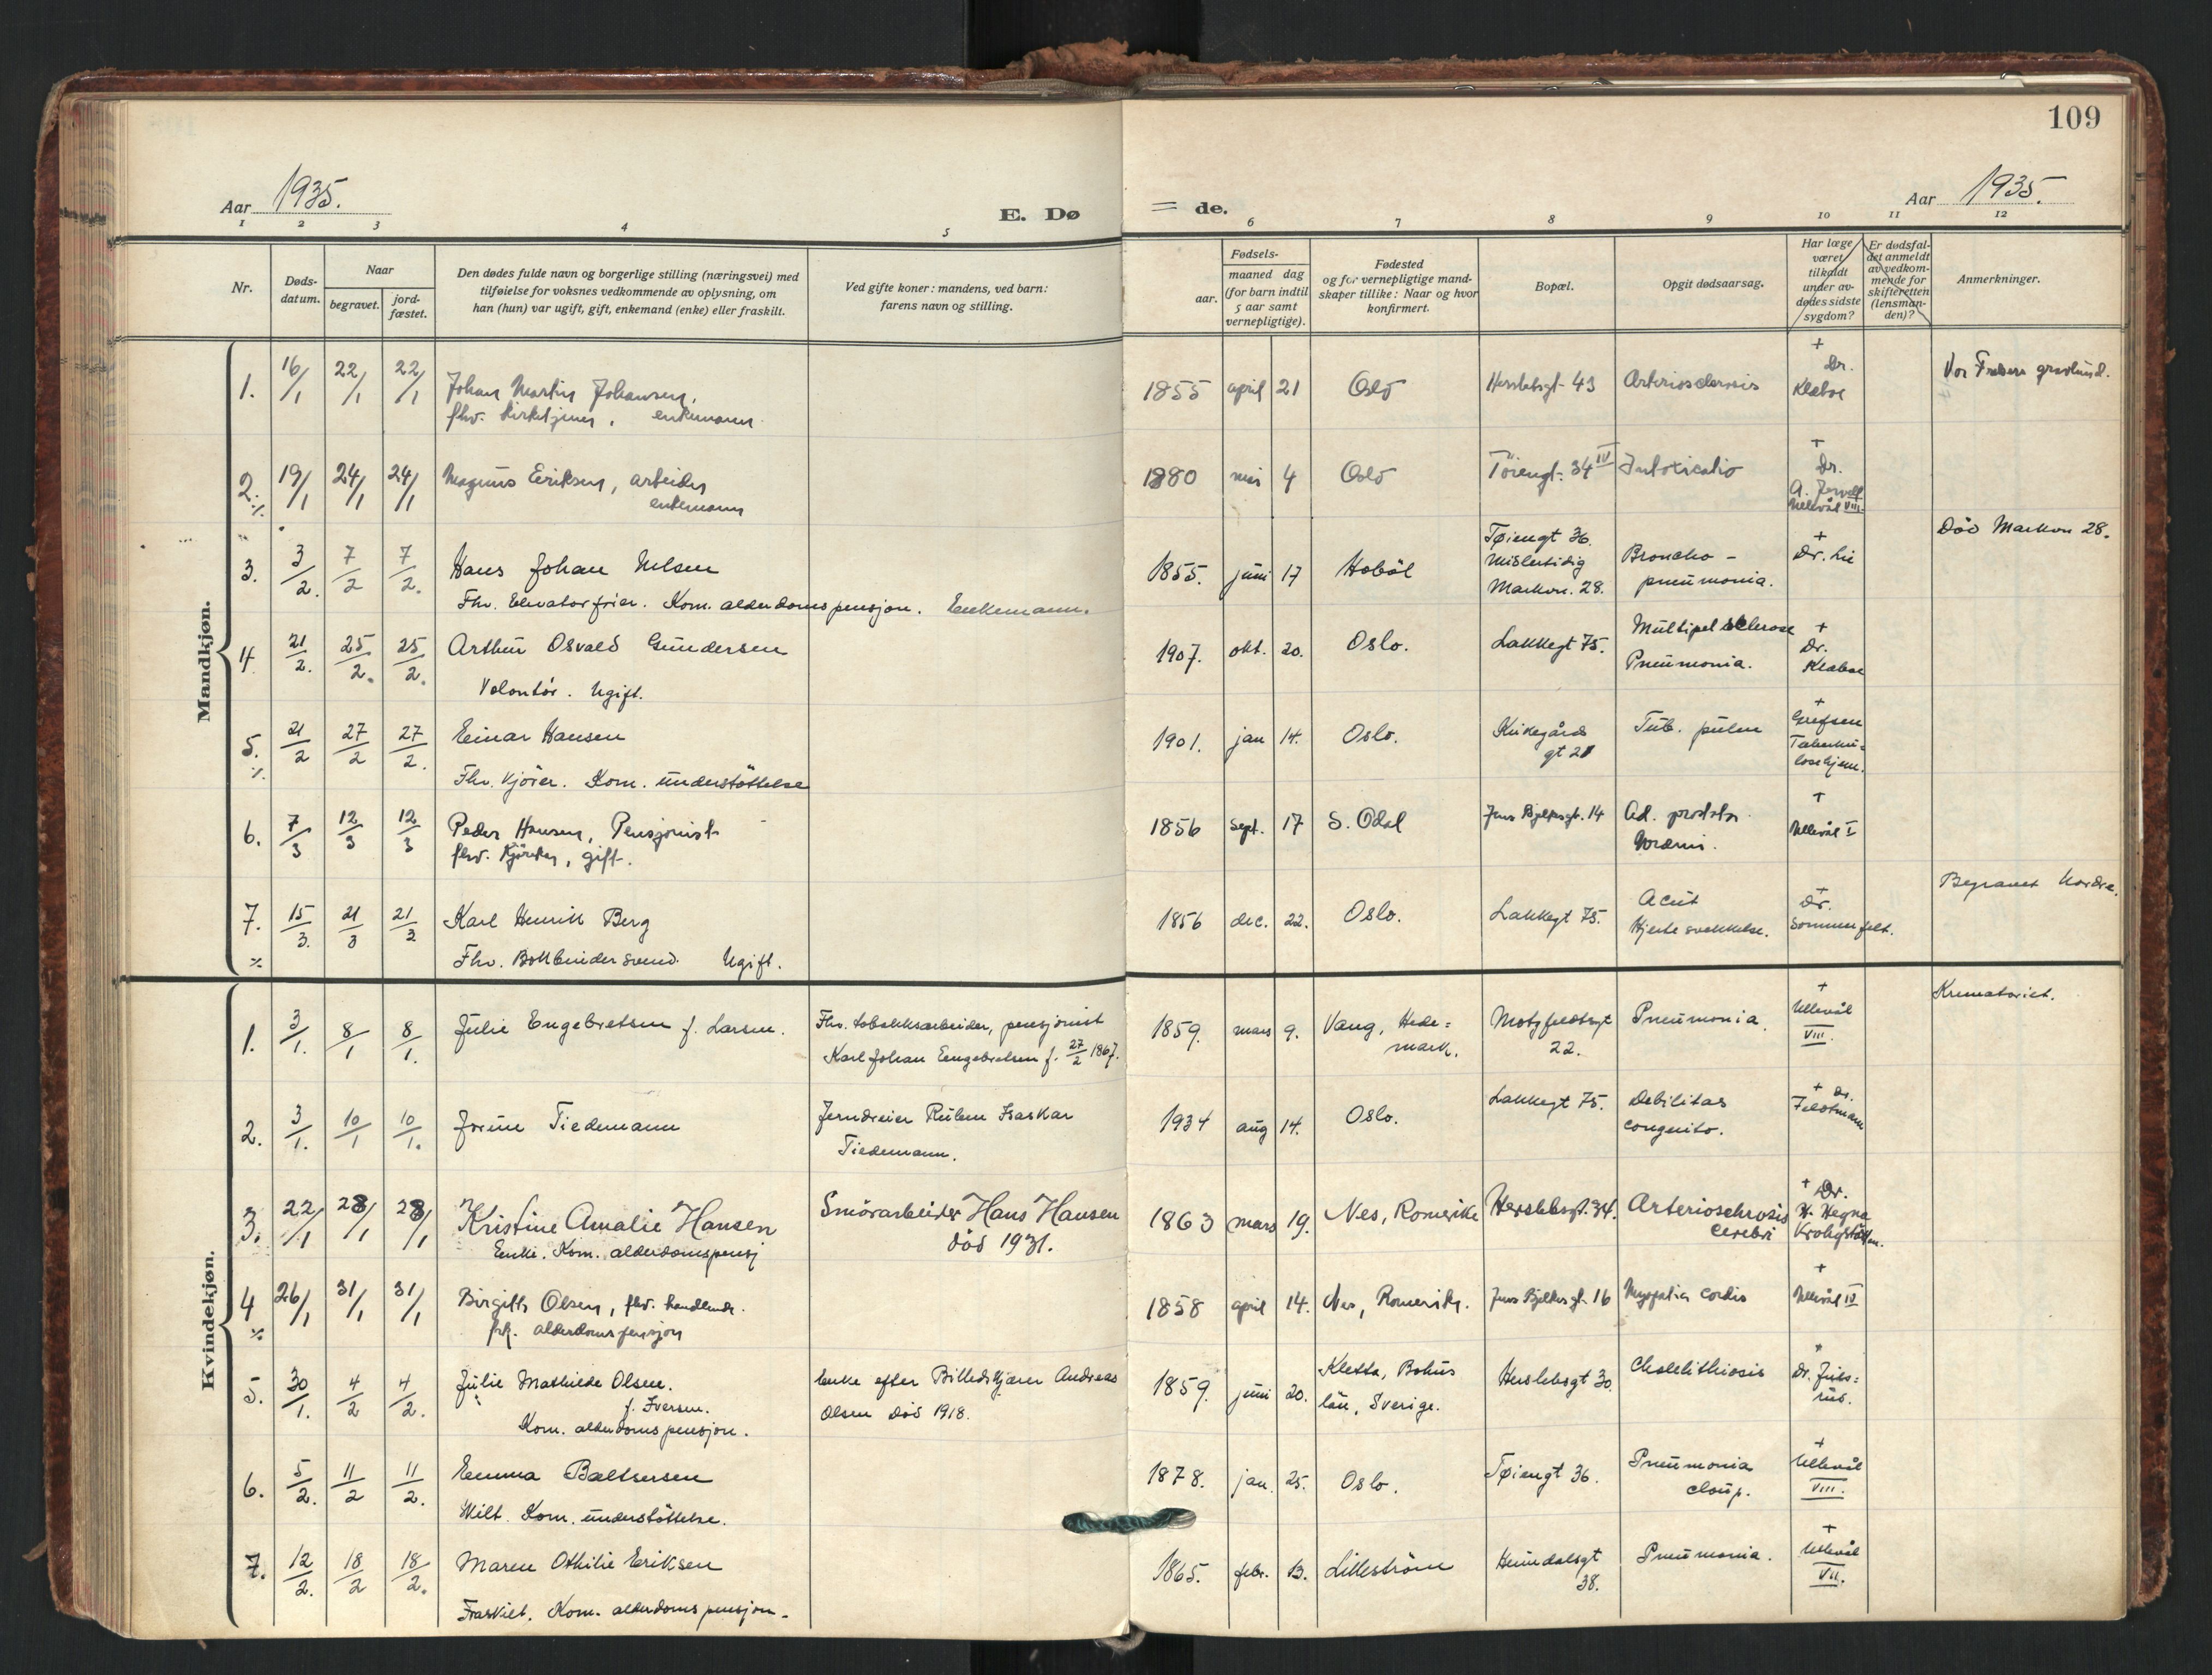 109
Aar 1935.
E. Dø
= de.
Aar 1935.
1 2 3 4 5 6 7 8 9 10 11 12
Nr.
Døds-
datum.
Naar
begravet.
jord-
fæstet.
Den dødes fulde navn og borgerlige stilling (næringsvei) med
tilføielse for voksnes vedkommende av oplysning, om
han (hun) var ugift, gift, enkemand (enke) eller fraskilt.
Ved gifte koner: mandens, ved barn:
farens navn og stilling.
Fødsels-
aar.
maaned dag
(for barn indtil
5 aar samt
vernepligtige).
Fødested
og for vernepligtige mand-
skaper tillike: Naar og hvor
konfirmert.
Bopæl.
Opgit dødsaarsag.
Har læge
været
tilkaldt
under av-
dødes sidste
sygdom?
Er dødsfal-
det anmeldt
av vedkom-
mende for
skifteretten
(lensman-
den)?
Anmerkninger.
Mandkjøn.
1. 16/1 22/1 22/1 Johan Martin Johansen,
fhv. kirketjener, enkemann.
1855 april 21 Oslo Herslebsgt. 43 Arteriosclerosis + Dr.
Klæboe
Vor Frelsers gravlund.
2. 19/1 24/1 24/1 Magnus Eriksen, arbeider
enkemann
1880 mai 4 Oslo Töiengt. 34 IV Intoxicatio + Dr.
A. Jervell
Ullevål VIII
3. 3/2. 7/2 7/2. Hans Johan Nilsen
Fhv. Elevatorfrier. Kom. alderdomspensjon. Enkemann.
1855. juni 17 Hobøl Tøiengt 36.
Midlertidig
Markvn. 28.
Broncho-
pneumonia.
+
Dr. Lie
Död Markvn 28.
4. 21/2. 25/2. 25/2. Arthur Osvald Gundersen
Volontör. Ugift.
1907. okt. 20. Oslo. Lakkegt 75. Multipel sclerose
Pneumonia.
+
Dr.
Klæboe
5. 21/2 27/2 27/2. Einar Hansen
Fhv. Kjörer. Kom. understöttelse
1901. jan 14. Oslo. Kirkegårds
gt 21
Tub. pulm
+
Grefsen
Tuberku-
losehjem.
6. 7/3 12/3 12/3 Peder Hansen, Pensjonist
fhv. Kjörer, gift.
1856 sept. 17 S. Odal Jens Bjelkesgt. 14 Ad. prostata
Uræmi.
+
Ullevål I
7. 15/3. 21/3 21/3 Karl Henrik Berg
Fhv. Bokbindersvend. Ugift.
1856 dec. 22. Oslo. Lakkegt 75. Acut
Hjertesvekkelse.
+
Dr.
Sommerfelt.
Begravet Nordre.
Kvindekjøn.
1. 3/1. 8/1 8/1. Julie Engebretsen f. Larsen.
Fhv. tobakksarbeider, pensjonist
Karl Johan Engebretsen f. 27/2 1867.
1859. mars 9. Vang, Hede=
mark.
Motzfeldtsgt
22.
Pneumonia.
+
Ullevål
VIII.
Krematoriet.
2. 3/1. 10/1 10/1. Jorine Tiedemann
Jerndreier Ruben Isaskar
Tiedemann.
1934 aug 14. Oslo. Lakkegt 75. Debilitas
congenito.
+ Dr.
Feldtmann
3. 22/1 28/1 28/1 Kristine Amalie Hansen
Enke. Kom. alderdomspensj
Smörarbeider Hans Hansen
död 1931.
1863 mars 19. Nes, Romerike Herslebsgt. 34. Arteriosclerosis
cerebri
+ Dr.
H. Hegna
Krohgstötten.
4 26/1 31/1 31/1 Birgitte Olsen, fhv. handlende.
frk. alderdomspensjon
1858 april 14. Nes, Romerike. Jens Bjelkesgt. 16 Myopatia cordis
+
Ullevål IV
5. 30/1. 4/2 4/2. Julie Mathilde Olsen.
f. Iversen.
Kom. alderdomspensjon.
Enke efter Billedskjærer Andreas
Olsen Död 1918.
1859. juni 20. Kletta, Bohus
län, Sverige.
Herslebsgt 30. Cholelithiosis
+
6. 5/2. 11/2 11/2. Emma Baltsersen
Skilt. Kom. understöttelse.
1878. jan. 25. Oslo. Tøiengt 36. Pneumonia
+
Ullevål
VIII.
7. 12/2. 18/2 18/2. Maren Othilie Eriksen
Fraskilt. Kom. alderdomspensjon.
1865. febr. 13. Lilleström Heimdalsgt
38.
Pneumonia.
+
Ullevål
VII.